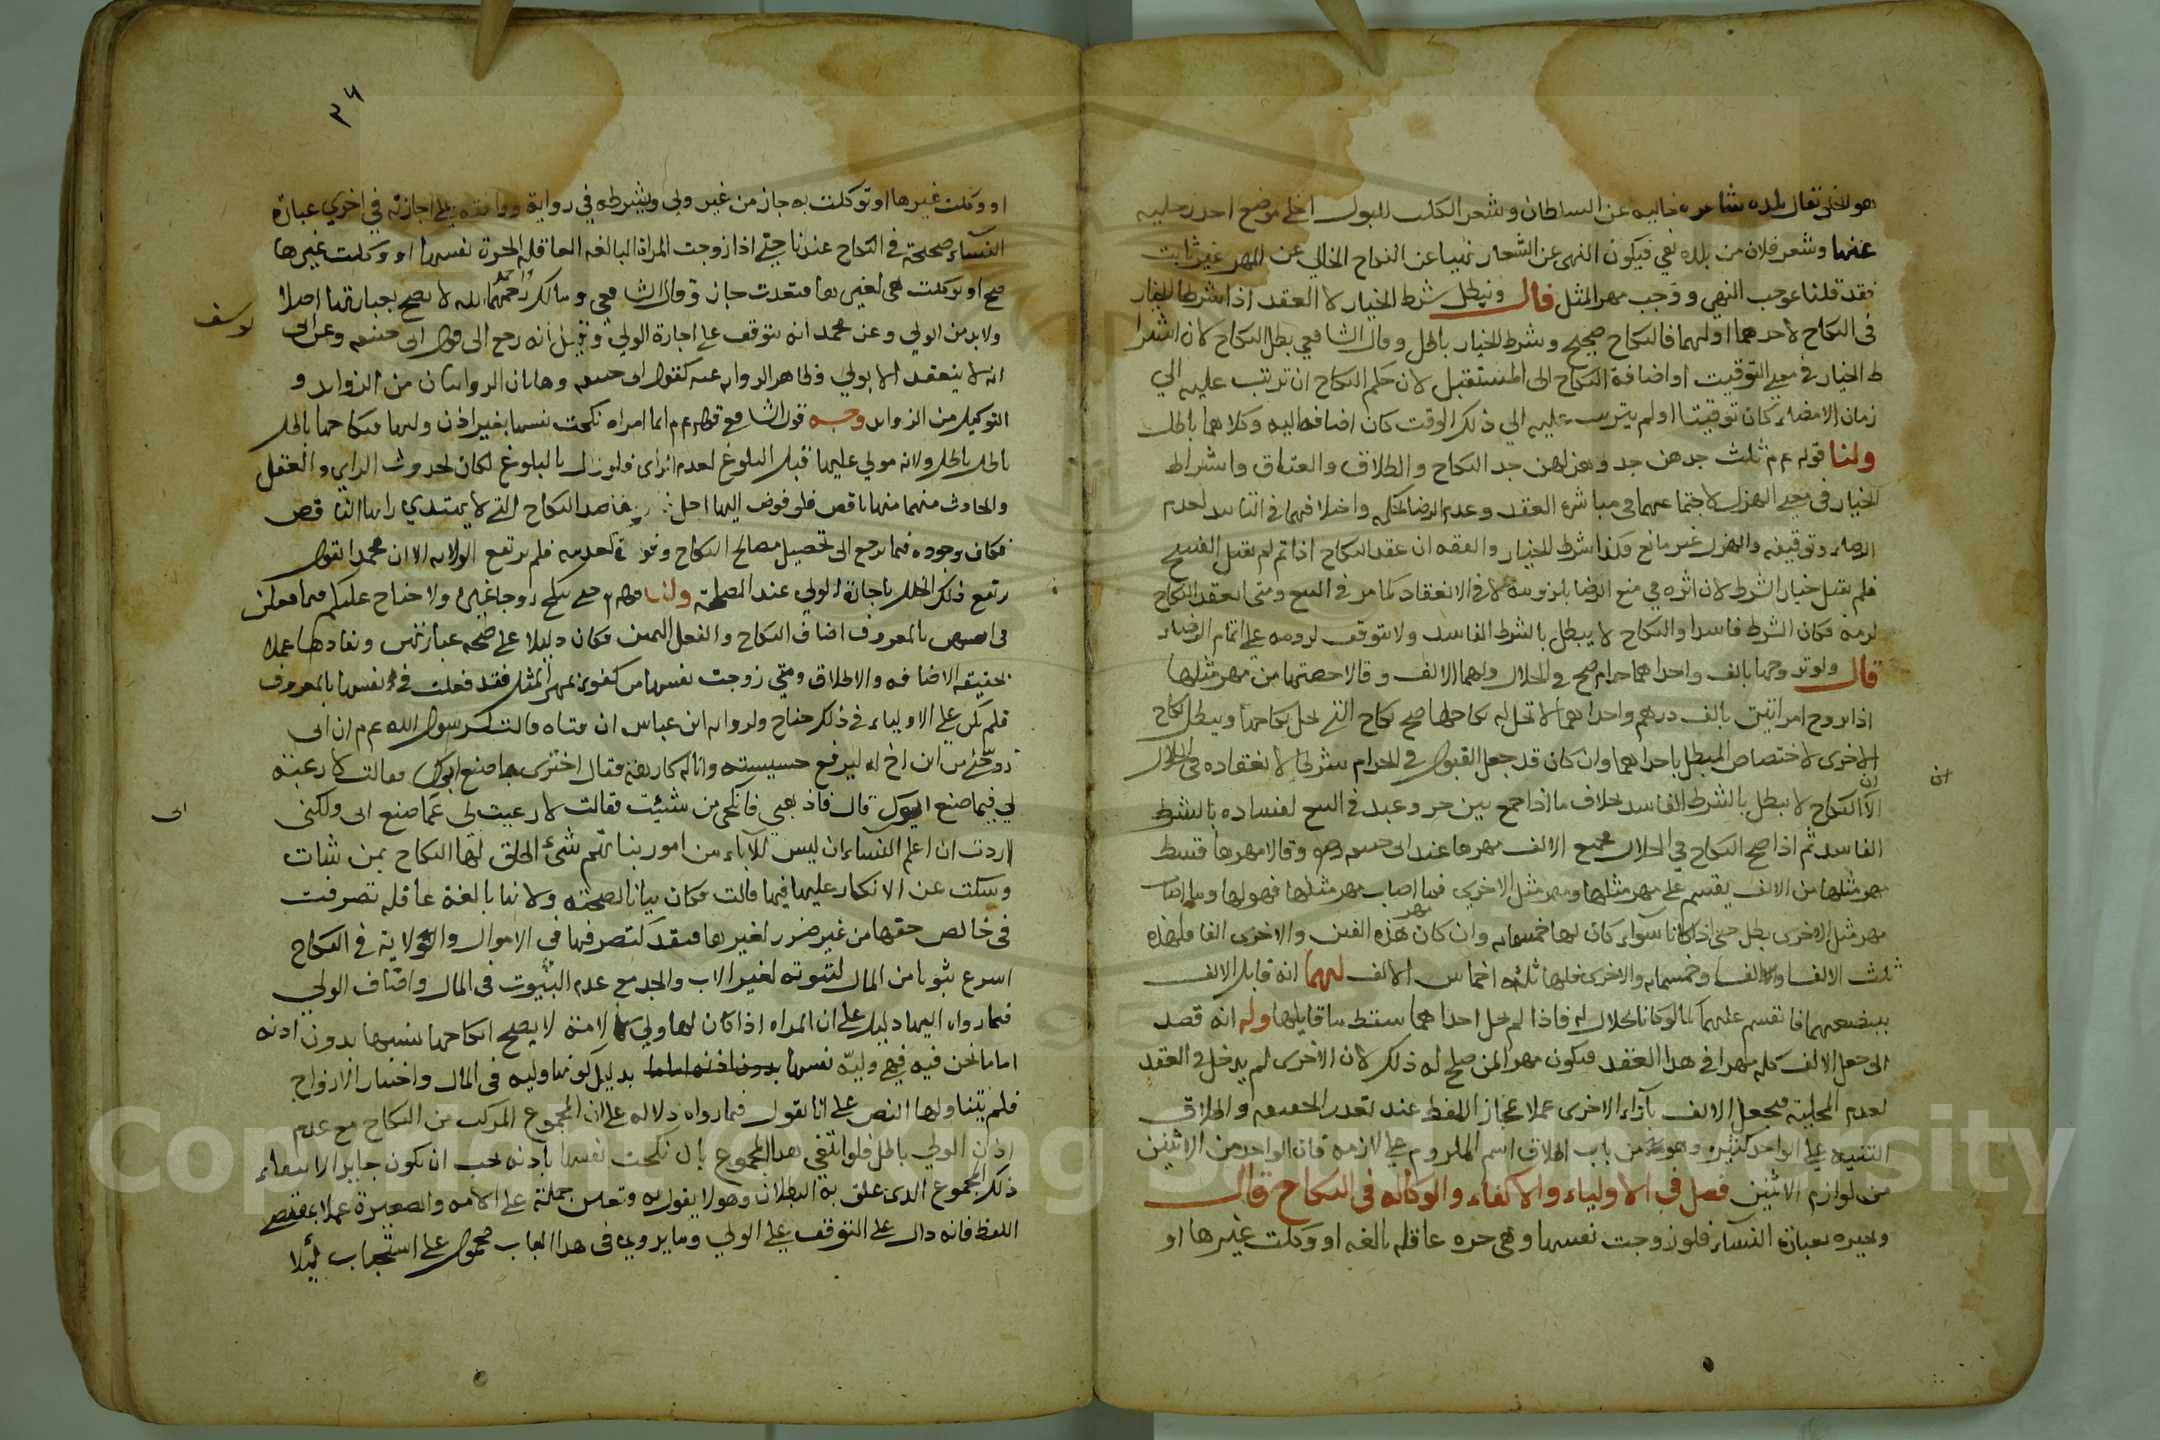 هو الخلو يقال بلده شاعره خاليه عن السلطان وشعر الكلب للبول اخلى موضع احد رجليه
عنها وشعر فلان من بلده نفي فيكون النهى عن الشعار نهيا عن النكاح الخالي عن المهر غير ثابت
فقد قلنا بموجب النهي ووجب مهر المثل قال ويبطل شرط الخيار لا العقد اذا شرط الخيار
فى النكاح لاحدهما او لهما فالنكاح صحيح وشرط الخيار باطل وقال الشافعي يبطل النكاح لان اشترا
ط الخيار في معنى التوقيت او اضافة النكاح الى المستقبل لان حكم النكاح ان ترتب عليه الي
زمان الامضاء كان توقيتا او لم يترتب عليه الي ذلك الوقت كان اضافه اليه وكلاهما باطل
ولنا قوله عم ثلث جدهن جد وهزلهن جد النكاح والطلاق والعتاق واشتراط
الخيار فى معنى الهزل لاجتماعهما فى مباشرة العقد وعدم الرضا بحكمه واختلافهما فى التابيد لعدم
الرضاء وتوقيته والهزل غير مانع فكذا شرط الخيار والفقه ان عقد النكاح اذا تم لم يقبل الفسخ
فلم يقبل خيار الشرط لان اثره في منع الرضا بلزومه لا في الانعقاد كما مر في البيع ومتى انعقد النكاح
لزمه فكان الشرط فاسدا والنكاح لا يبطل بالشرط الفاسد ولا يتوقف لزومه على تمام الرضاء
قال ولو تزوجها بالف واحداهما حرام صح في الحلال ولهما الالف وقالا حصتها من مهر مثلها
اذا تزوج امراتين بالف درهم واحداهما لا تحل له نكاحها صح نكاح التي تحل نكاحها ويبطل نكاح
الاخرى لاختصاص المبطل باحداهما وان كان قد جعل القبول في الحرام شرطا لانعقاده في الحلال
الا ان النكاح لا يبطل بالشرط الفاسد بخلاف ما اذا جمع بين حر وعبد في البيع لفساده بالشرط
ان
الفاسد ثم اذا صح النكاح في الحلال فجميع الالف مهرها عند ابى حنيفه وقالا مهرها قسط
مهر مثلها من الالف يقسم على مهر مثلها ومهر مثل الاخرى فما اصاب مهر مثلها فهو لها وما اصاب
مهر مثل الاخرى بطل حتى اذا كانا سواء كان لها خمسمايه وان كان مهر هذه الفين والاخرى الفا فلهذه
ثلث الالف او الفا وخمسمايه والاخرى فلها ثلثه اخماس الالف لهما انه قابل الالف
ببضعهما فانقسم عليهما كما لو كانا حلال له فاذا لم تحل احداهما سقط ما قابلها وله انه قصد
الى جعل الالف كله مهرا في هذا العقد فيكون مهرا لمن صلح له ذلك لان الاخرى لم يدخل في العقد
لعدم المحلية فيجعل الالف بازاء الاخرى عملا بمجاز اللفظ عند تعذر الحقيقه واطلاق
التثنيه على الواحد كثير وهو من باب اطلاق اسم الملزوم على لازمه فان الواحد من الاثنين
من لوازم الاثنين فصل في الاولياء والاكفاء والوكاله في النكاح قال
ونجيزه بعبارة النساء فلو زوجت نفسها وهي حره عاقله بالغه او وكلت غيرها او
٣٤
او وكلت غيرها او توكلت به جاز من غير ولى ويشرطه في رواية ووافقه على اجازته في اخري عبارة
النساء صحيحة في النكاح عندنا حتى اذا زوجت المراة البالغه العاقله الحرة نفسها او وكلت غيرها
صح او توكلت هى لغيرها فتعقدت جاز وقال الشافعي ومالك رحمهما الله لا يصح بعبارتها اصلا
ولا بد من الولي وعن محمد انه يتوقف على اجازة الولي وقيل انه رجع الى قول ابى حنيفه وعن ابى
يوسف
انه لا ينعقد الا بولي وظاهر الروايه عنه كقول ابى حنيفه وهاتان الروايتان من الزوايد و
التوكيل من الزوايد وجه قول الشافعي قوله عم ايما امراه نكحت نفسها بغير اذن وليها فنكاحها باطل
باطل باطل ولانه مولي عليها قبل البلوغ لعدم الراى فلو زال بالبلوغ لكان لحدوث الراي والعقل
والحادث منهما منها ناقص فلو فوض اليها اخل بمقاصد النكاح التي لا يهتدي رايها الناقص
فكان وجوده فيما يرجع الى تحصيل مصالح النكاح وعدمه فلم يرتفع الولايه الا ان محمدا يقول
يرتفع ذلك الخلل باجازة الولي عند المصلحة ولنا قوله تع حتى تنكح زوجا غيره ولا جناح عليكم فيما فعلن
فى انفسهن بالمعروف اضاف النكاح والفعل اليهن فكان دليلا على صحه عبارتهن ونفادها عملا
بحقيقه الاضافه والاطلاق ومتي زوجت نفسها من كفوء بمهر المثل فقد فعلت في نفسها بالمعروف
فلم يكن على الاولياء في ذلك جناح ولروايه ابن عباس ان فتاه قالت لرسول الله عم ان ابى
زوجني من ابن اخ له ليرفع خسيسته وانا له كارهة فقال اختري ما صنع ابوك فقالت لا رغبة
لي فيما صنع ابى قال فاذهبي فانكحى من شئت فقالت لا رغبت لى عما صنع ابى ولكنى
ابى
اردت ان اعلم النساء ان ليس للاباء من امور بناتهم شئ اطلق لها النكاح بمن شات
وسكت عن الانكار عليها فيما قالت فكان بيانا لصحته ولانها بالغة عاقله تصرفت
في خالص حقها من غير ضرر لغيرها فينفد كتصرفها في الاموال والولاية في النكاح
اسرع ثبوتا من المال لثبوته لغير الاب والجد مع عدم الثبوت في المال واضاف الولي
فيما رواه اليها دليل على ان المراه اذا كان لها ولي كالامة لا يصح انكاحها نفسها بدون اذنه
اما ما نحن فيه فهي وليّة نفسها بدليل كونها وليه فى المال واختيار الازواج
فلم يتناولها النص على انا نقول فيما رواه دلاله على ان المجموع المركب من النكاح مع عدم
اذن الولي باطل فلو انتفى هذا المجموع بان نكحت نفسها باذنه يجب ان يكون جايزا لانتفاء
ذلك المجموع الذى علق به البطلان وهو لا يقول به وتعين حمله على الامه والصغيرة عملا بمقتضى
اللفظ فانه دال على التوقف على الولي وما يروي في هذا الباب محمول على استحباب ليلا
Copyright © King Saud University